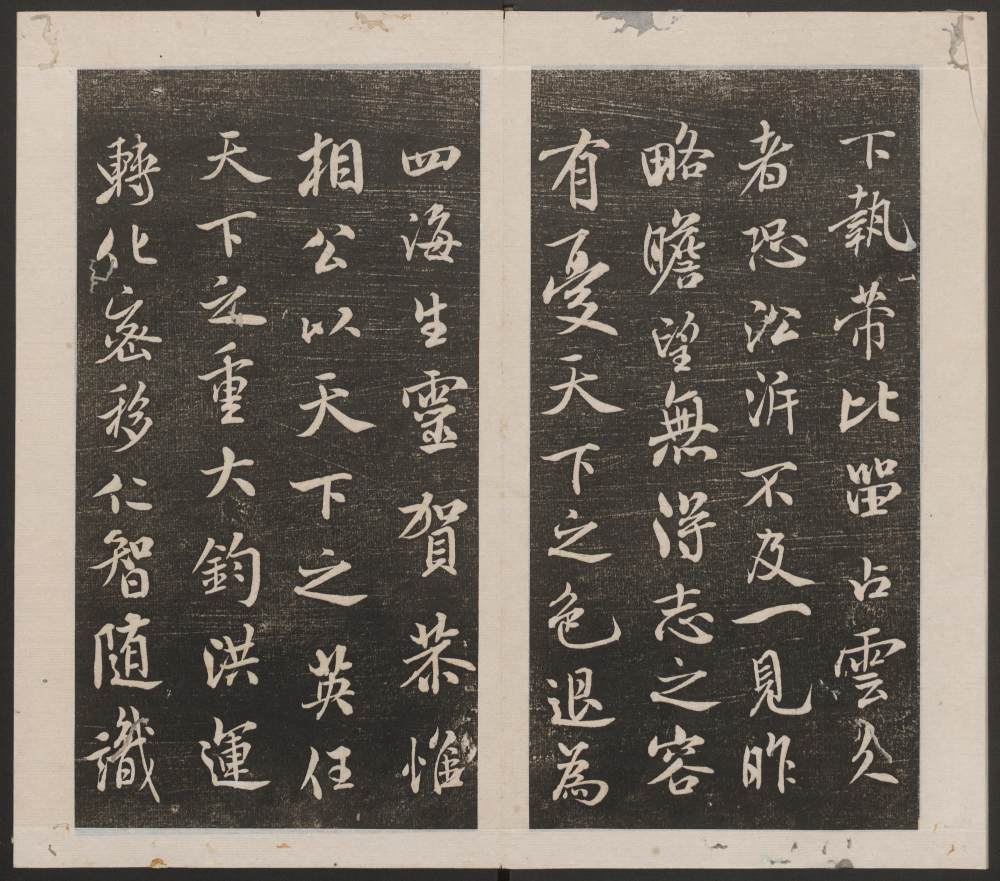 下執帯比畱占雲久
者恐㳂泝不及一見昨
略瞻望無得志之容
有憂天下之色退為
四海生靈賀恭惟
相公以天下之英任
天下之重大鈞洪運
轉化密移仁智随識